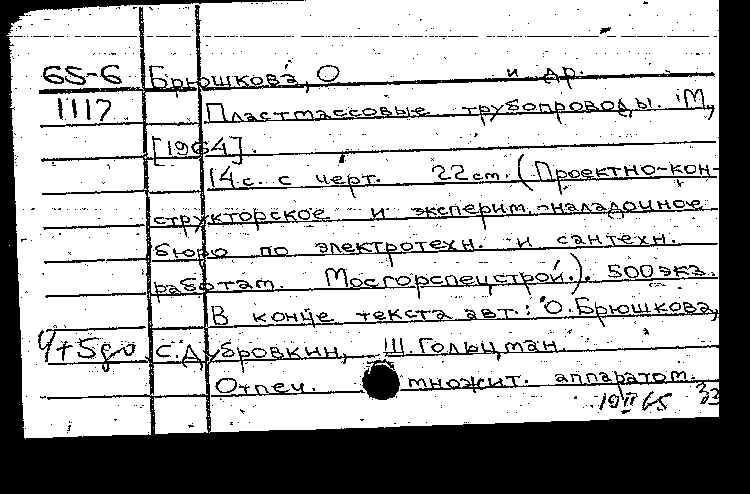 65-6 Брюшкова, О и др.
1117 Пластмассовые трубопроводы. М.,
[1964].
14 с. с черт. 22 см. (Проектно-кон-
структорское и эксперим.-наладочное
бюро по электротехн. и сантехн.
работам. Мосгорспецстрой.). 500 экз.
В конце текста авт.: О. Брюшкова,
С. Дубровкин, Ш. Гольцман.
Отпеч. множит. аппаратом.
19 II 65